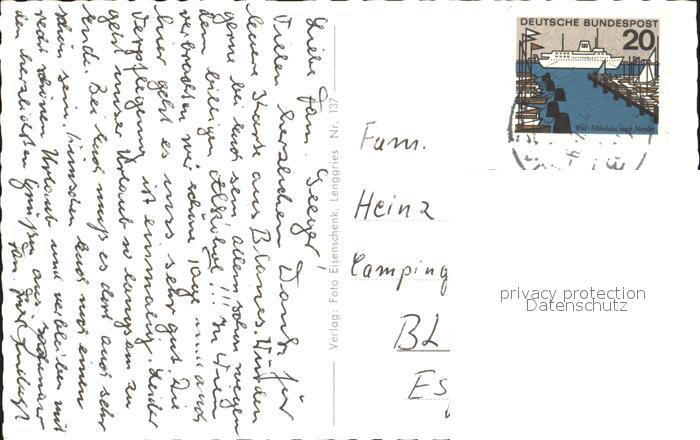 Liebe Fam. Geeger!
Vielen herzlichen Dank für
Eure Karte aus Blanes. Würden
gerne bei Euch sein allein schon wegen
dem billigen Alkohol!!! In Wien
verbrachten wir schöne Tage und auch
hier geht es uns sehr gut. Die
Verpflegung ist einmalig. Leider
geht unser Urlaub so langsam zu
Ende. Bei Euch muß es dort auch sehr
schön sein. Wünschen Euch noch einen
recht schönen Urlaub und verbleiben mit
den herzlichsten Grüßen aus
Fam.
Verlag: Foto Eisenschenk, Lenggries Nr. 137
DEUTSCHE BUNDESPOST
20
Kiel-Fährhaus nach Norden
Fam.
Heinz
Camping
BL
Es
privacy protection
Datenschutz